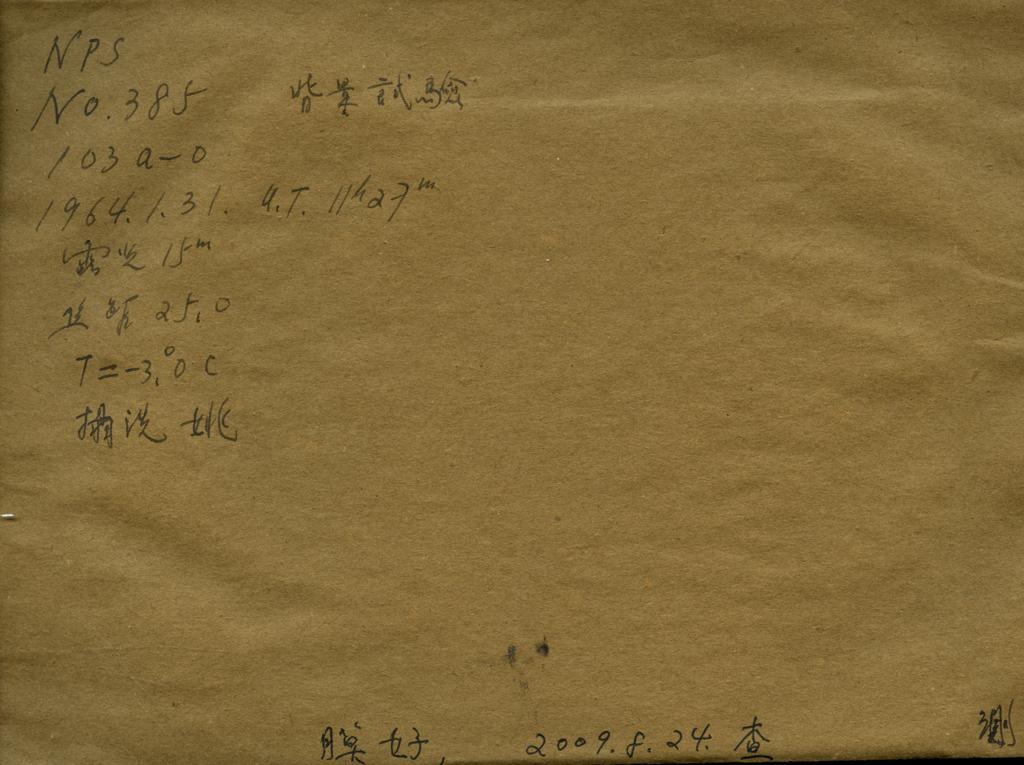 NPS
No.385 背景試驗
103a-0
1964.1.31. U.T. 11h27m
露光 15m
焦距 25.0
T=-3.°0 C
攝洗 姚
膜好, 2009.8.24. 查
測